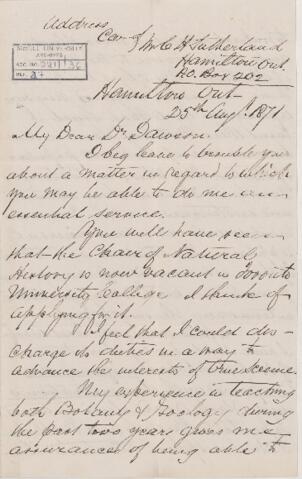 Address
Care of Mr C H Sutherland
Hamilton Ont.
P.O. Box 202
McGILL UNIVERSITY
ARCHIVES
ACC. NO.
REF.
Hamilton Ont
25th Augt. 1871
My Dear Dr Dawson
I beg leave to trouble you
about a matter in regard to which
you may be able to do me an
essential service.
You will have seen
that the Chair of Natural
History is now vacant in Toronto
University College I think of
applying for it.
I feel that I could dis-
charge its duties in a way to
advance the interests of true Science.
My experience in teaching
both Botany & Zoology during
the past two years gives me
assurances of being able to